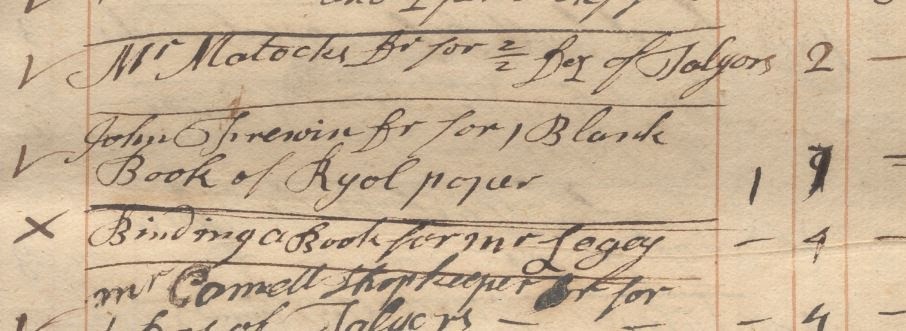 Mr Matocks Dr for 2/2 Dox of Salyors 2 —
John Threwin Dr for 1 Blank
Book of Ryol paper 1
× Binding a Book for mr Legey — 4 —
mr Camell Shopkeeper Dr for
of Salyers — — 4 —